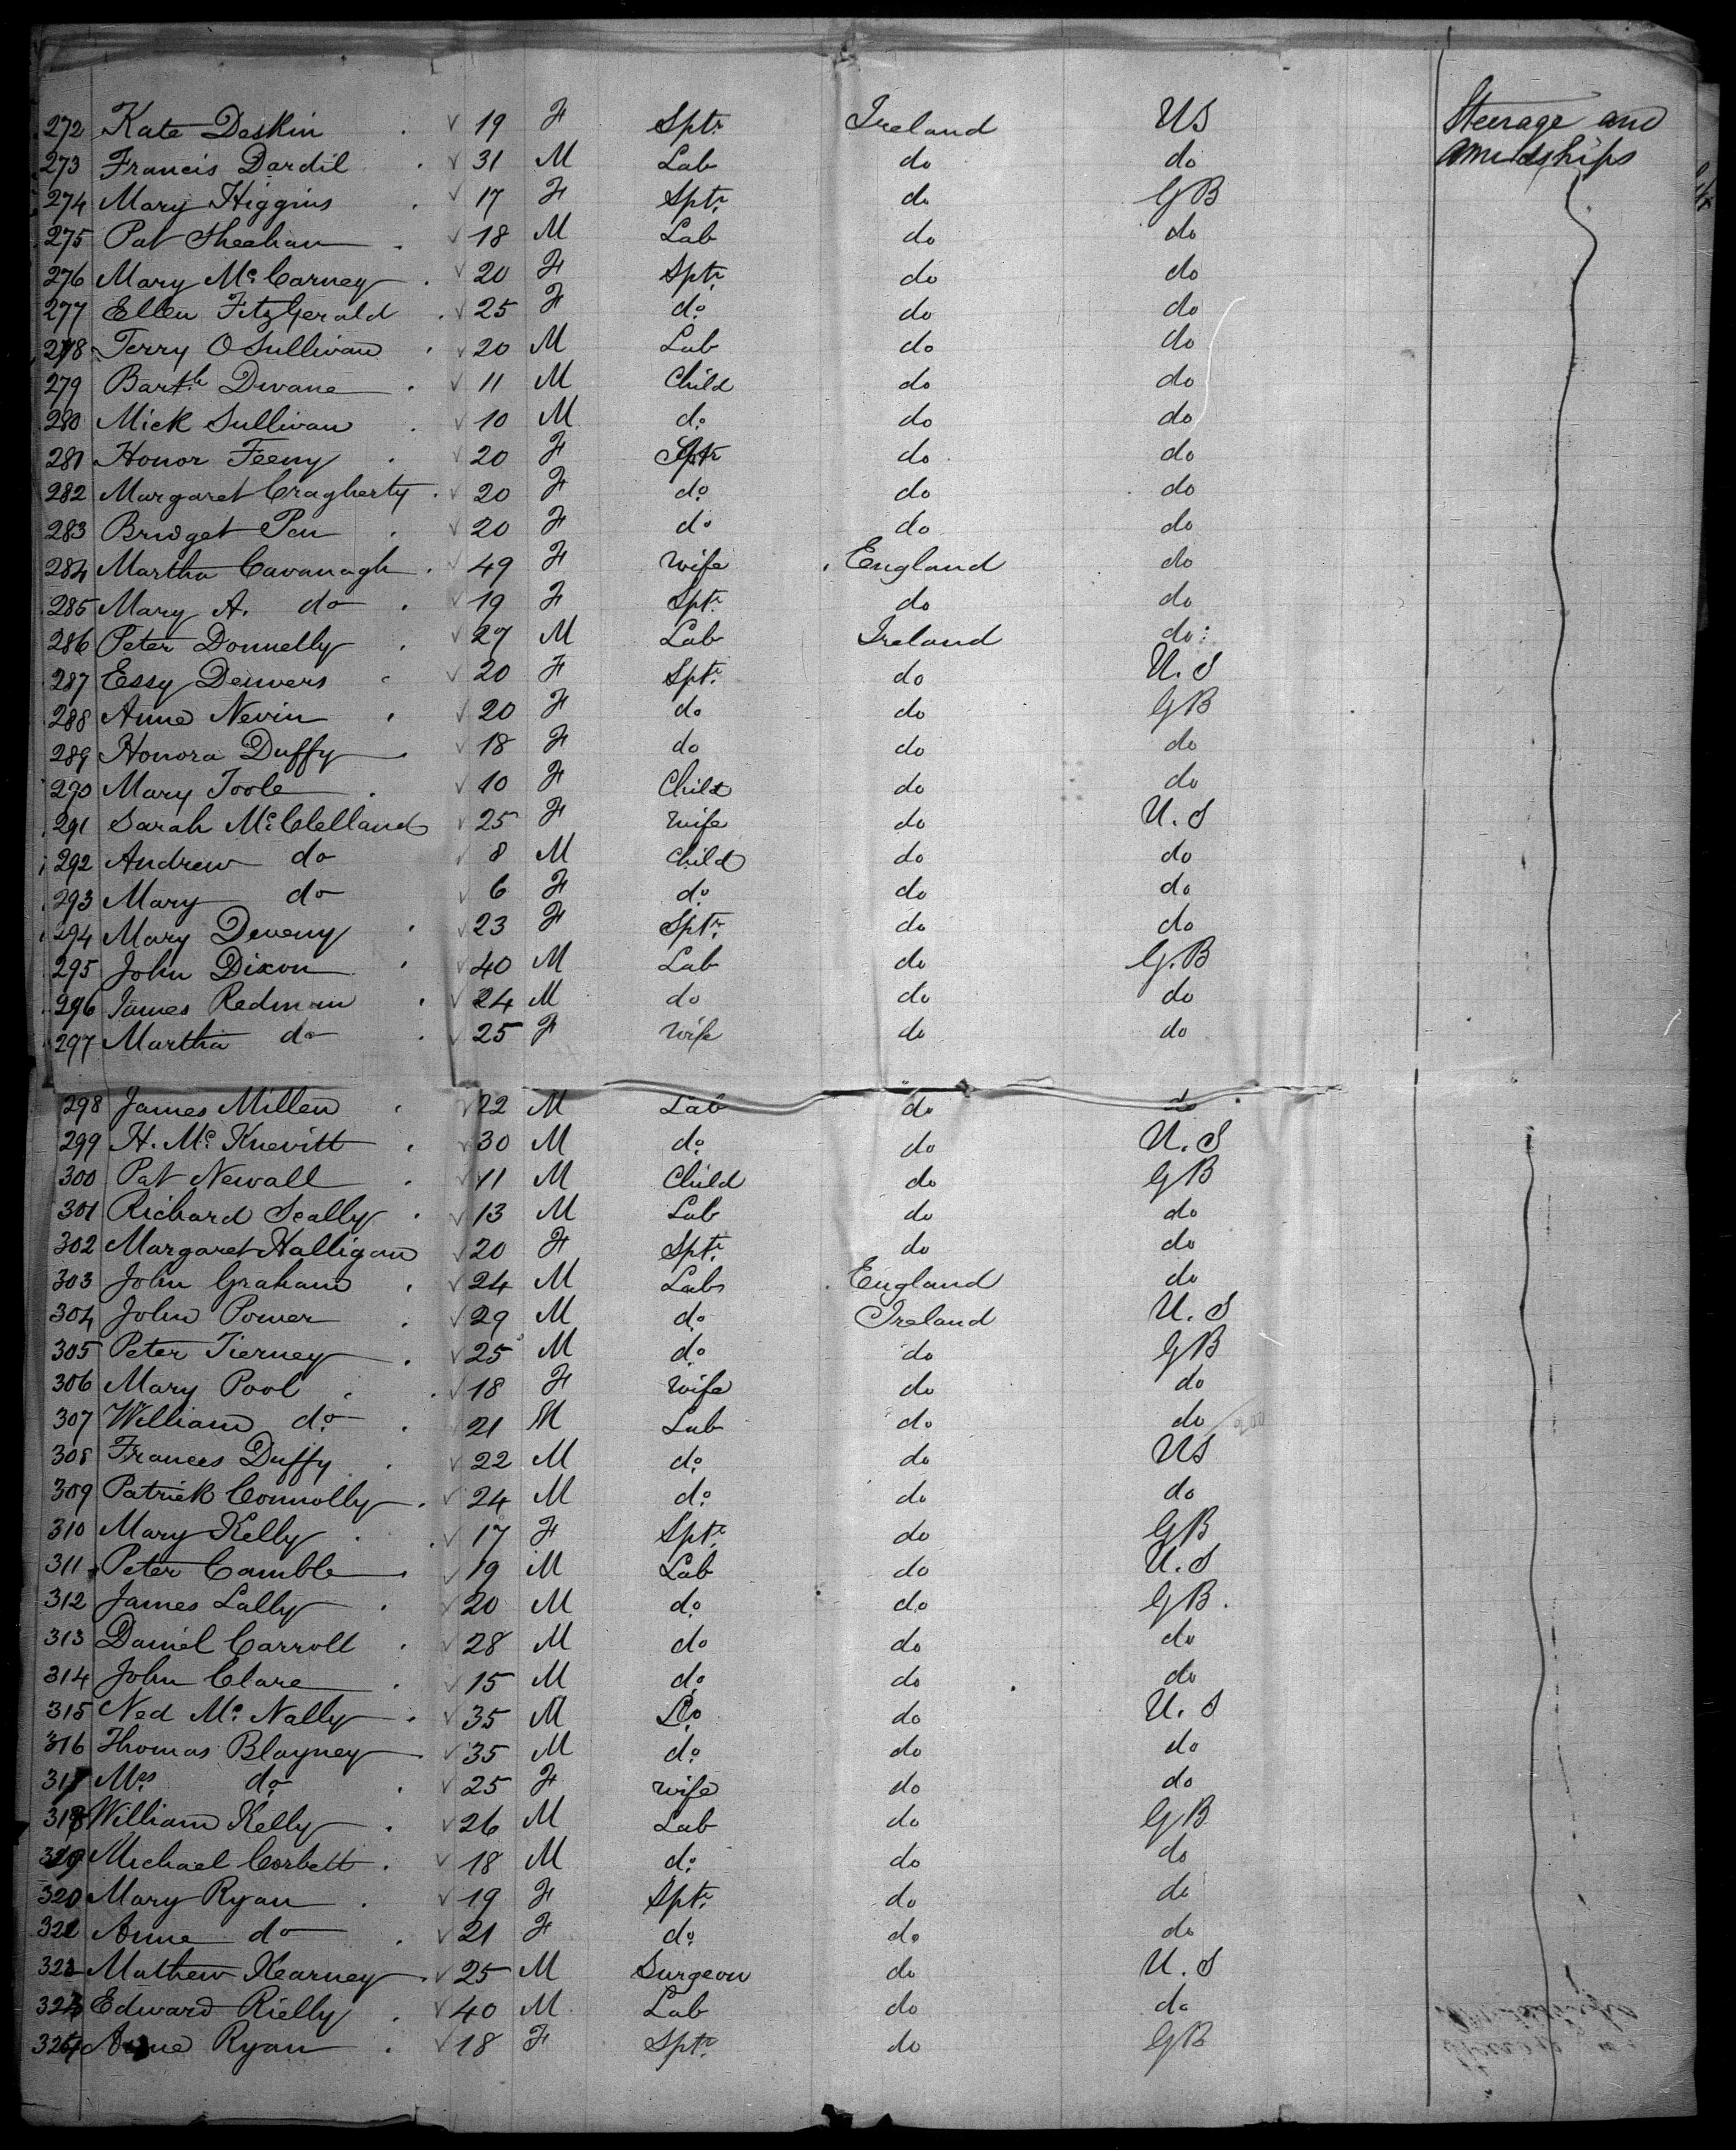 272 Kate Deskin 19 F Sptr Ireland US Steerage and
273 Francis Dardil 31 M Lab do do amidships
274 Mary Higgins 17 F Sptr do GB
275 Pat Sheehan 18 M Lab do do
276 Mary Mc Carney 20 F Sptr do do
277 Ellen FitzGerald 25 F do do do
278 Terry O Sullivan 20 M Lab do do
279 Barth Dwane 11 M Child do do
280 Mick Sullivan 10 M do do do
281 Honor Feeny 20 F Sptr do do
282 Margaret Cragherty 20 F do do do
283 Bridget Pan 20 F do do do
284 Martha Cavanagh 49 F wife England do
285 Mary A. do 19 F Sptr do do
286 Peter Donnelly 27 M Lab Ireland do
287 Essy Deivers 20 F Sptr do U.S
288 Anne Nevin 20 F do do GB
289 Honora Duffy 18 F do do do
290 Mary Toole 10 F Child do do
291 Sarah Mc Clelland 25 F wife do U.S
292 Andrew do 8 M Child do do
293 Mary do 6 F do do do
294 Mary Deveny 23 F Sptr do do
295 John Dixon 40 M Lab do G.B
296 James Redman 24 M do do do
297 Martha do 25 F Wife do do
298 James Millen 22 M Lab do do
299 H. Mc Knevitt 30 M do do U.S
300 Pat Newall 11 M Child do GB
301 Richard Scally 13 M Lab do do
302 Margaret Halligan 20 F Sptr do do
303 John Graham 24 M Lab England do
304 John Power 29 M do Ireland U.S
305 Peter Tierney 25 M do do GB
306 Mary Pool 18 F Wife do do
307 William do 21 M Lab do do
308 Frances Duffy 22 M do do US
309 Patrick Connolly 24 M do do do
310 Mary Kelly 17 F Sptr do GB
311 Peter Camble 19 M Lab do U.S
312 James Lally 20 M do do GB.
313 Daniel Carroll 28 M do do do
314 John Clare 15 M do do do
315 Ned Mc Nally 35 M Do do U.S
316 Thomas Blayney 35 M do do do
317 Mrs do 25 F wife do do
318 William Kelly 26 M Lab do GB
319 Michael Corbett 18 M do do do
320 Mary Ryan 19 F Sptr do do
321 Anne do 21 F do do do
322 Mathew Kearney 25 M Surgeon do U.S
323 Edward Rielly 40 M Lab do do
324 Anne Ryan 18 F Sptr do GB